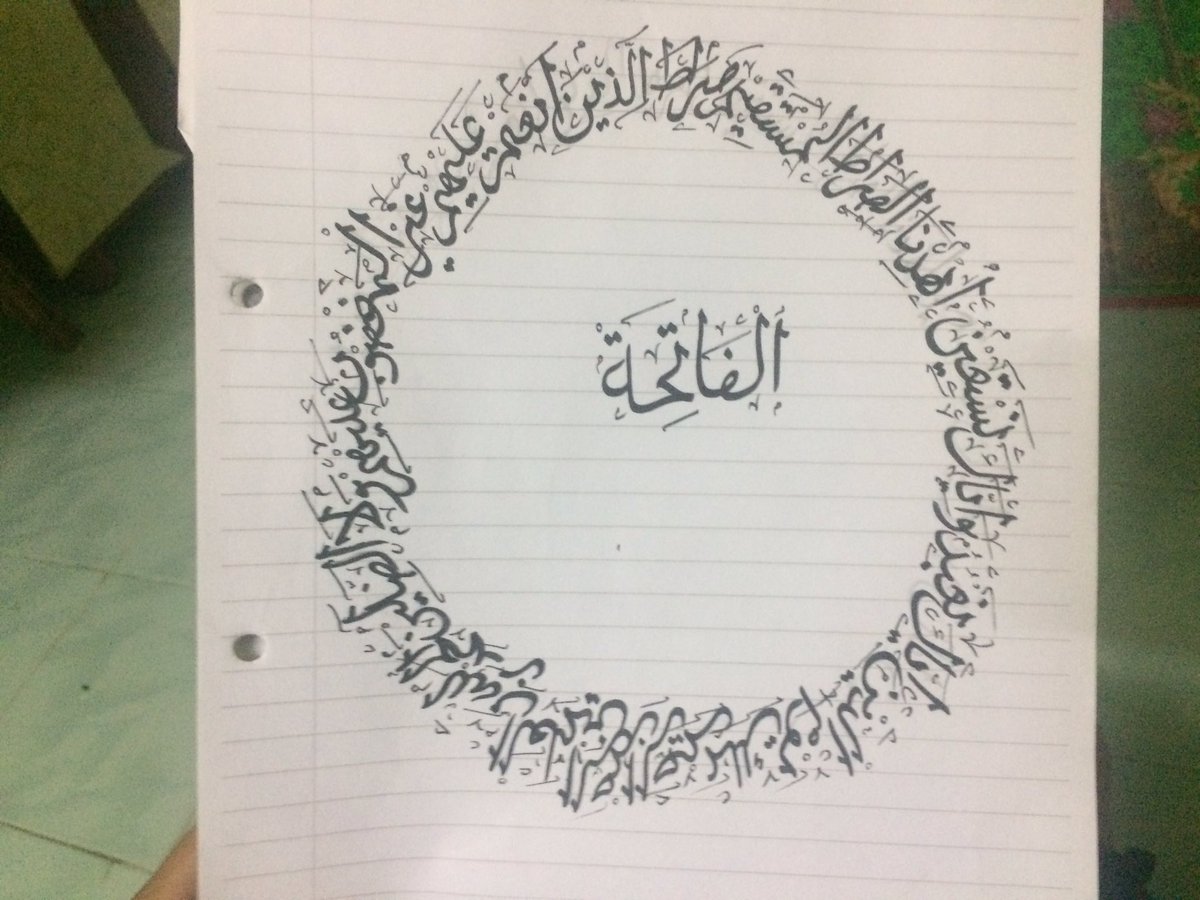 الْفَاتِحَة
الحمد لله رب العلمين الرحمن الرحيم ملك يوم الدين اياك نعبد واياك نستعين اهدنا الصراط المستقيم صراط الذين انعمت عليهم غير المغضوب عليهم ولا الضالين